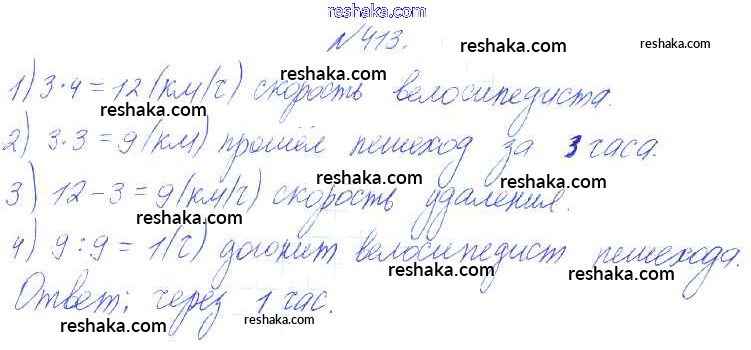 www.reshaka.com
reshaka.com
№413.
reshaka.com
1) 3·4=12 (км/ч) скорость велосипедиста.
reshaka.com
reshaka.com
2) 3·3=9 (км) прошёл пешеход за 3 часа.
reshaka.com
reshaka.com
3) 12-3=9 (км/ч) скорость удаления.
reshaka.com
reshaka.com
4) 9:9=1(ч) догонит велосипедист пешехода.
reshaka.com
reshaka.com
Ответ: через 1 час.
reshaka.com
reshaka.com